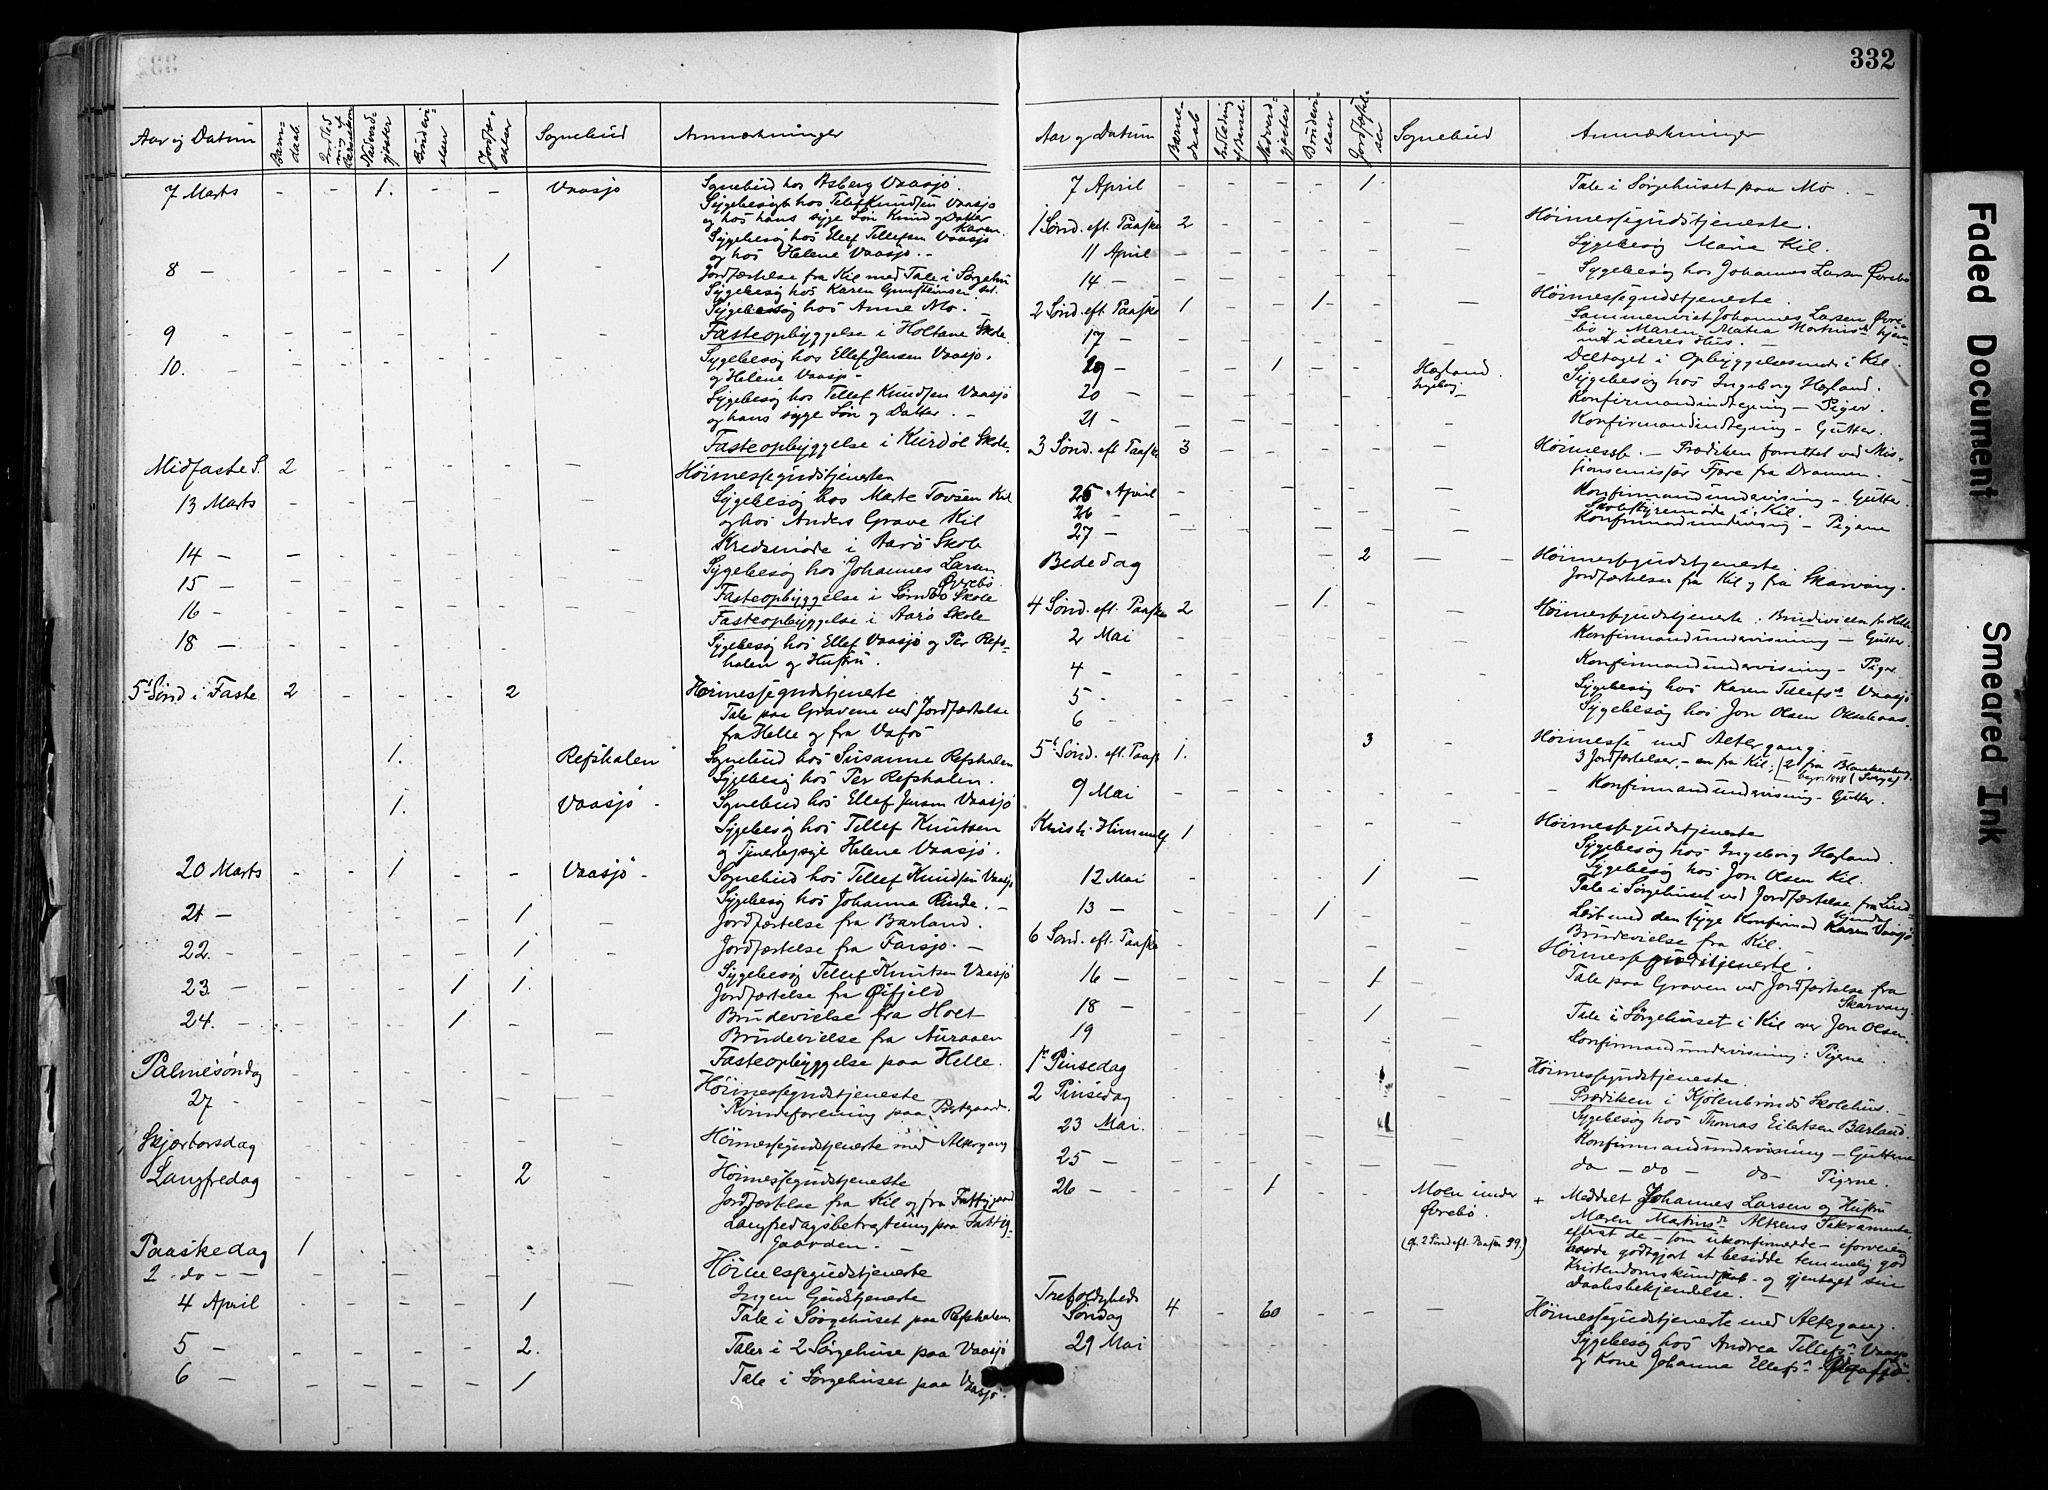 332
Aar og Datum
Barnedaab
Nadverdgjester
Brudevielser
Jordfæstelser
Sognebud
Anmærkninger
7 Marts - - 1. - - Vaasjø Sognebud hos Asberg Vaasjø.
Sygebesøg hos Tellef Knudsen Vaasjø
og hos hans syge Søn Knud og Datter
Karen.
Sygebesøg hos Ellef Tellefsen Vaasjø
og hos Helene Vaasjø. -
8 - - - - - 1 - Jordfæstelse fra Kil med Tale i Sørgehus
Sygebesøg hos Karen
Sygebesøg hos Anne Mo. -
9 - - - - - - - Fasteopbyggelse i Holtane Skole.
10. - - - - - - - Sygebesøg hos Ellef Jensen Vaasjø.
og Helene Vaasjø -
Sygebesøg hos Tellef Knudsen Vaasjø
og hans syge Søn og Datter. -
Fasteopbyggelse i Kurdøl Skole.
Midfaste S. 2 - - - - - Høimessegudstjenesten
13 Marts - - - - - - Sygebesøg hos Marte Tovsen Kil
og hos Anders Grave Kil
14 - - - - - - - Kredsmøde i Aarø Skole
15 - - - - - - Sygebesøg hos Johannes Larsen
Øvrebø.
16 - - - - - - - Fasteopbyggelse i Søndbø Skole
Fasteopbyggelse i Aarø Skole
18 - - - - - - - Sygebesøg hos Ellef Vaasjø og Per Refs-
halen og Hustru.
5' Sønd i Faste 2 - - - 2 - Høimessegudstjeneste
Tale paa Gravene ved Jordfæstelse
fra Helle og fra Vafos
1. Refshalen Sognebud hos Susanne Refshalen
Sygebesøg hos Per Refshalen.
1. Vaasjø - Sognebud hos Ellef Jensen Vaasjø
Sygebesøg hos Tellef Knutsen
og Helene Vaasjø.
20 Marts - - 1 - - Vaasjø - Sognebud hos Tellef Knudsen Vaasjø
Sygebesøg hos Johanna Rinde. -
21 - - - - - 1 - Jordfæstelse fra Barland.
22. - - - - - 1 - Jordfæstelse fra Farsjø. -
Sygebesøg Tellef Knutsen Vaasjø
23. - - - - 1 1. - Jordfæstelse fra Øifjeld
24. - - - - 1 - - Brudevielse fra Holt
Brudevielse fra Auraaen
Fasteopbyggelse paa Helle.
Palmesøndag - - - - - - Høimessegudstjeneste
27 - - - - - - - Kvindeforening paa Prstgaard.
Skjærtorsdag - - - - - - Høimessegudstjeneste med Altergang
Langfredag - - - - 2 - Høimessegudstjeneste
Jordfæstelse fra Kil og fra Fattiggaard
Langfredagsbetragtning paa Fattig-
gaarden. -
Paaskedag 1 - - - - - Høimessegudstjeneste
2. do - - - - - - - Ingen Gudstjeneste
4 April - - - - 1 - Tale i Sørgehuset paa Refshalen
5 - - - - - 2. - Taler i 2 Sørgehuse paa Vaasjø
6 - - - - - 1 - Tale i Sørgehuset paa Vaasjø.
Aar og Datum
Barnedaab
Indledning af Barsel.
Nadverdgjester
Brudevielser
Jordfæstelser
Sognebud
Anmærkninger
7 April - - - - 1 - Tale i Sørgehuset paa Mo. -
1 Sønd. eft. Paaske 2 - - - - - Høimessegudstjeneste.
11 April - - - - - - Sygebesøg Marie Kil.
14 - - - - - - - Sygebesøg hos Johannes Larsen Øvrebø
2 Sønd. eft. Paaske 1 - - 1 - - Høimessegudstjeneste.
Sammenviet Johannes Larsen Øvre
bø og Maren Matea Martinusdr hjem-
me i deres Hus. -
17 - - - - - - - Deltaget i Opbyggelsesmøde i Kil.
19 - - - 1 - - Hegland. Ingeborg - Sygebesøg hos Ingeborg Hegland.
20 - - - - - - - Konfirmandindtegning - Piger.
21 - - - - - - - Konfirmandindtegning - Gutter.
3 Sønd. eft Paaske 3 - - - - - Høimesse. - Prædiken forrettet ved Mis-
sionsemissær Fjære fra Drammen.
25 April - - - - - - Konfirmandundervisning - Gutter.
26 - - - - - - - Skolestyremøde i Kil.
27 - - - - - - - Konfirmandundervisning - Pigerne
Bededag - - 2 - - Høimessegudstjeneste.
Jordfæstelser fra Kil og fra Skarvang.
4 Sønd. eft. Paaske 2 - - 1. - - Høimessegudstjeneste. Brudevielse fra Helle
2 Mai - - - - - - Konfirmandundervisning - Gutter.
4 - - - - - - - Konfirmandundervisning - Piger
5 - - - - - - - Sygebesøg hos Karen Tellefsdr Vaasjø
6 - - - - - - - Sygebesøg hos Jon Olsen
5' Sønd. eft. Paaske 1. 3 - Høimesse med Altergang.
3 Jordfæstelser, - en fra Kil, (2 fra Blankenborg.
begr. 1898 (Sverge)
9 Mai - - - - - - Konfirmandundervisning - Gutter.
Kristi Himmelf 1 - - - - - Høimessegudstjeneste
Sygebesøg hos Ingeborg Hegland.
12 Mai - - - - 1 - Sygebesøg hos Jon Olsen Kil.
Tale i Sørgehuset ved Jordfæstelse fra
Læst med den syge Konfirmand Karen Vaasjø
13 - - - - 1 - - Brudevielse fra Kil.
6 Sønd. eft. Paaske - - - - - - Høimessegudstjeneste.
16 - - - - - 1 - Tale paa Graven ved Jordfæstelse fra
Skarvang
18 - - - - - 1 - Tale i Sørgehuset i Kil over Jon Olsen
19 - - - - - - Konfirmandundervisning: Pigerne.
1' Pinsedag - - - - - - Høimessegudstjeneste.
2 Pinsedag - - - - - - Prædiken i Kjølebrønds Skolehus. -
23 Mai. - - - - 1 - Sygebesøg hos Thomas Eilertsen Barland.
Konfirmandundervisning - Gutterne
25 - - - - - - - do - do - do - Pigerne.
26 - - - 1 - - Moen under Øvrebø. + Meddelt Johannes Larsen og Hustru
Maren Martinusdr Alterens Sakramente,
efterat de - som ukonfirmerede - iforveien
havde godtgjort at besidde temmelig god
Kristendomskundskab - og gjentaget sin
Daabsbekjendelse. -
(cf. 2 Sønd eft. Paaske 99.)
Trefoldigheds
Søndag 4 - 60 - - - Høimessegudstjeneste med Altergang.
29 Mai Sygebesøg hos Andrea Tellefsdr Vaasjø
og Kone Johanna Ellefsdr
Faded Document
Smeared Ink